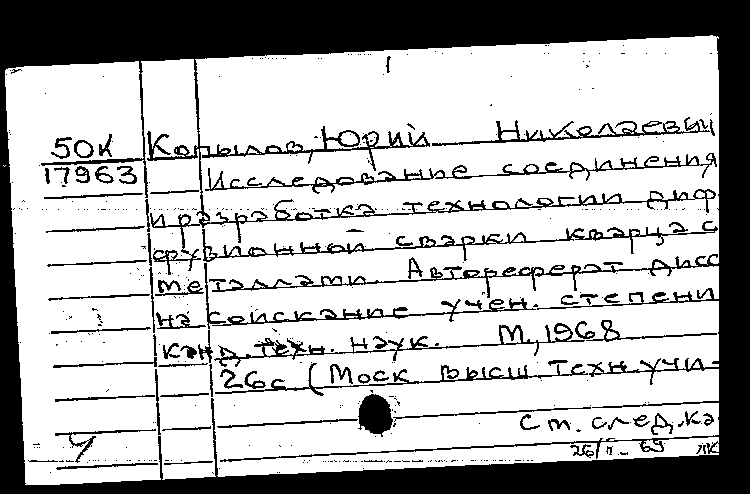 50К Копылов, Юрий Николаевич
17963 Исследование соединения
и разработка технологии диф-
фузионной сварки кварца с
металлами. Автореферат дисс
на соискание учен. степени
канд. техн. наук. М., 1968
26с (Моск высш. техн. учи-
См. след. ка
26/II-69 ЖК